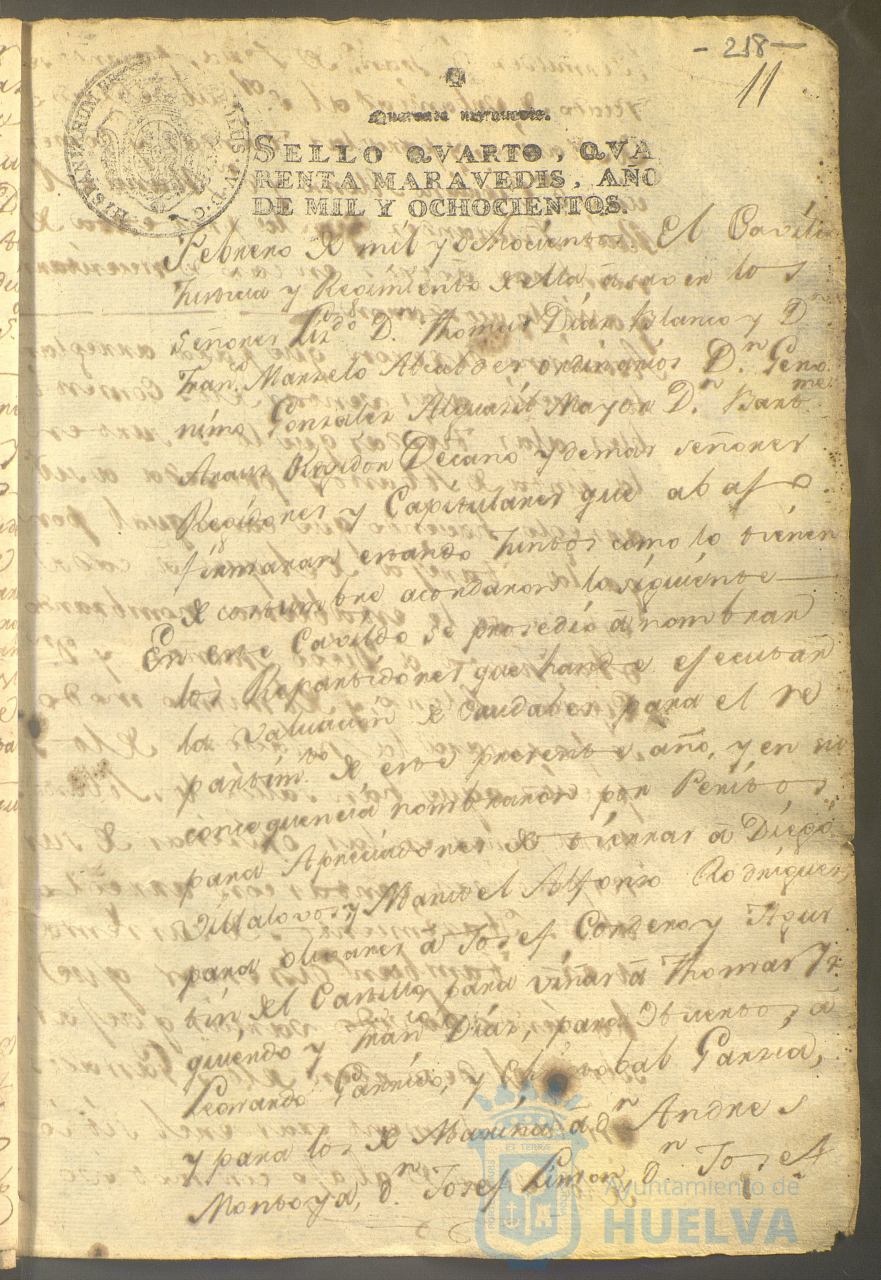 - 218 -
11
Quarenta maravedis.
SELLO QVARTO, QVA
RENTA MARAVEDIS, AÑO
DE MIL Y OCHOCIENTOS.
HISPANIARUM
Febrero de mil y ochocientos. El Cavildo
Justicia y Regimiento de ella a saver los
Señores Lizdo D. Thomas Diaz Blanco y Dn
Franco Marzelo Alcaldes ordinarios Dn Gero
nimo Gonzalez Alguazil Mayor Dn Bartme
Arauz Regidor Decano y demas señores
Regidores y Capitulares que abajo
firmaran estando juntos como lo tienen
de costumbre acordaron lo siguiente
En este Cavildo se prosedió á nombrar
los Repartidores que han de efecutar
la valuacion de caudales para el re
partimto de este presente año, y en su
consequencia nombraron por Peritos
para Apreciadores de tierras á Diego
Villalovos y Manuel Alfonso Rodriguez
para olivares á Josef Cordero y Agus
tin del Castillo para viñas á Thomas Yz
quierdo y Franco Diaz, para
Leonardo Garrido, y Christobal Garzia,
y para los de Marina á dn Andres
Montoya, dn Josef Limon dn Josef
Ayuntamiento de
HUELVA